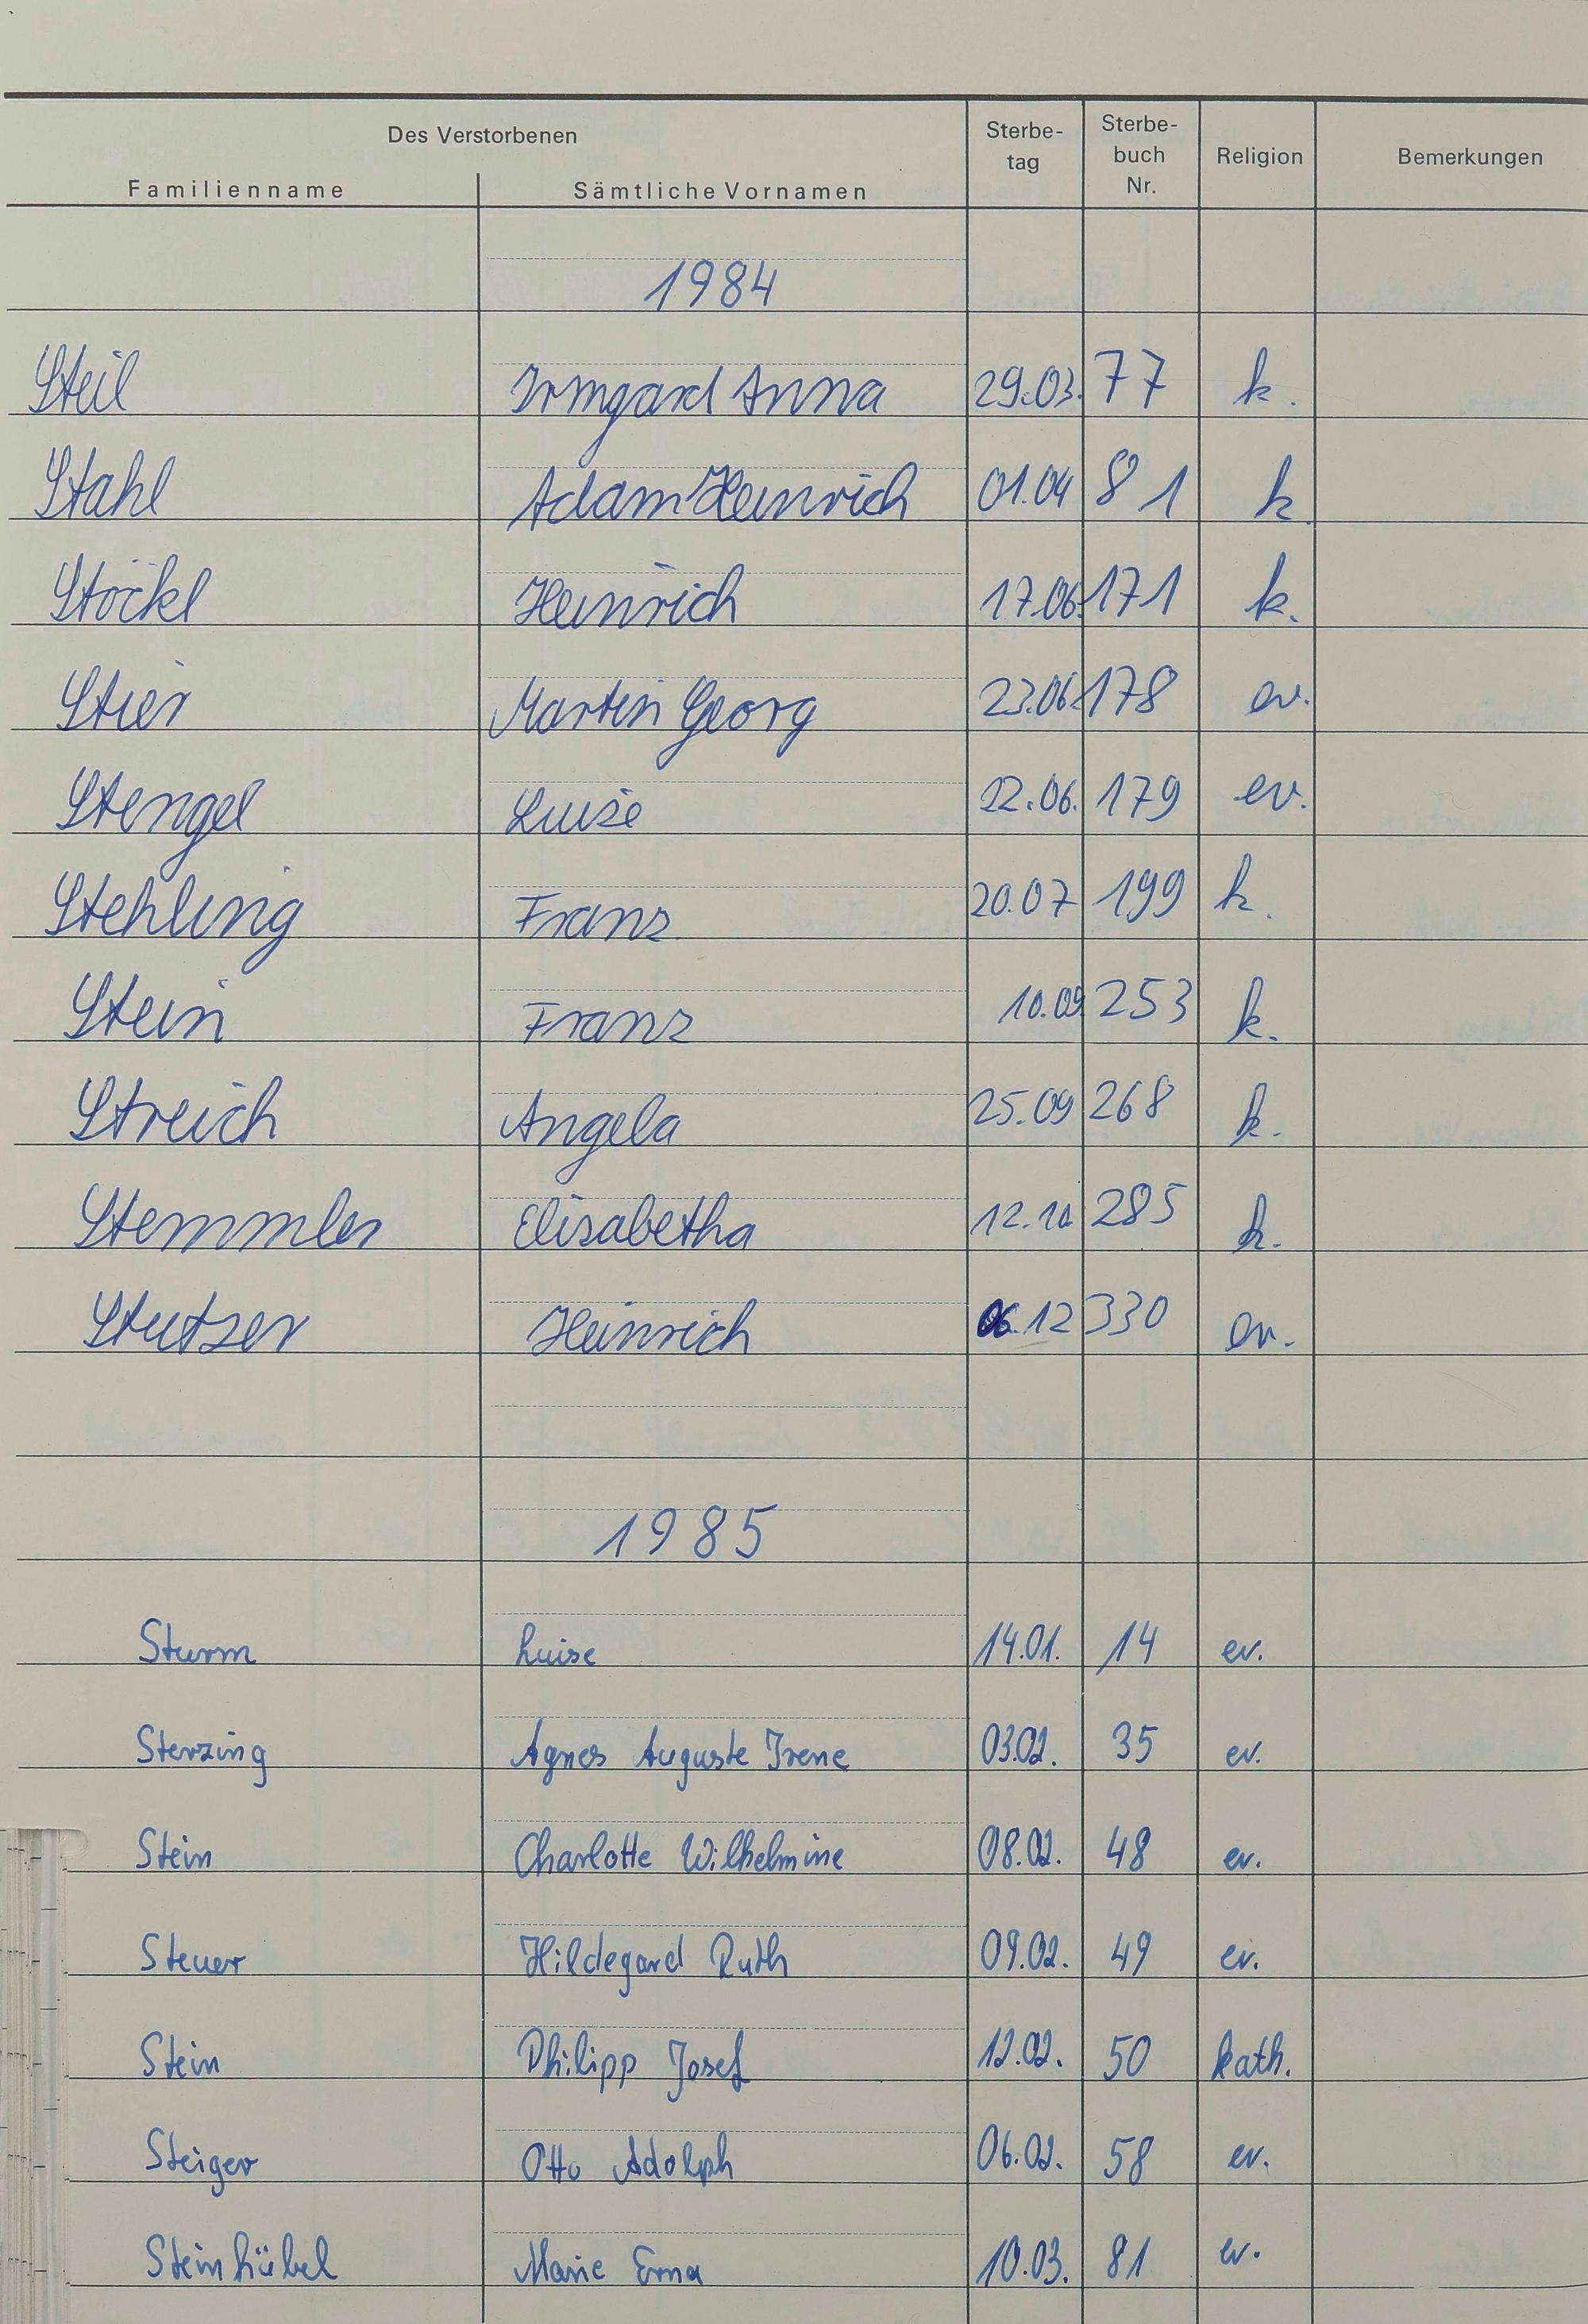 Des Verstorbenen
Familienname Sämtliche Vornamen Sterbe-tag Sterbe-buch Nr. Religion Bemerkungen
1984
Steil Irmgard Anna 29.03. 77 k.
Stahl Adam Heinrich 01.04 81 k.
Stöckl Heinrich 17.06. 171 k.
Stier Martin Georg 23.06. 178 ev.
Stengel Luise 22.06. 179 ev.
Stehling Franz 20.07 199 k.
Stein Franz 10.09. 253 k.
Streich Angela 25.09 268 k.
Stemmler Elisabetha 12.10 285 k.
Stutzer Heinrich 06.12 330 ev.
1985
Sturm Luise 14.01. 14 ev.
Sterzing Agnes Auguste Irene 03.02. 35 ev.
Stein Charlotte Wilhelmine 08.02. 48 ev.
Steuer Hildegard Ruth 09.02. 49 ev.
Stein Philipp Josef 12.02. 50 kath.
Steiger Otto Adolph 06.02. 58 ev.
Steinhübel Marie Erna 10.03. 81 ev.